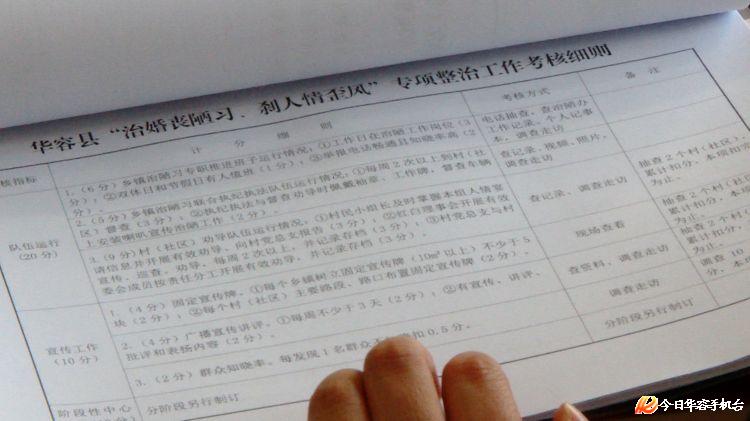 华容县“治婚丧陋习、刹人情歪风”专项整治工作考核细则
核指标
计分细则
考核方式
备注
队伍运行
（20分）
1.（6分）乡镇治陋习专职推进班子运行情况：①工作日在治陋工作岗位（3
分）；②双休日和节假日有人值班（1分）；③举报电话畅通且知晓率高（2
分）。
电话抽查、查治陋办
工作记录、个人记事
本，调查走访
2.（5分）乡镇治陋习联合执纪执法队伍运行情况：①每周2次以上到村（社
区）督查（3分）；②执纪执法与督查劝导时佩戴袖章、工作牌，督查车辆
上安装喇叭宣传治陋工作（2分）。
查记录、视频、照片，
调查走访
3.（9分）村（社区）劝导队伍运行情况：①村民小组长及时掌握本组人情宴
请信息并开展有效劝导，向村党总支报告（3分）；②红白理事会开展有效
宣传、巡查、劝导，每周2次以上，并记录存档（3分）；③村党总支与村
委会成员按责任分工开展有效劝导，并记录存档（3分）。
查记录、调查走访
抽查2个村（社区），
累计扣分，本项扣完
为止。
宣传工作
（10分）
1.（4分）固定宣传牌。①每个乡镇树立固定宣传牌（10㎡以上）不少于5
块（2分）；②每个村（社区）主要路段、路口布置固定宣传牌（2分）。
现场查看
抽查2个村（社区
累计扣分，本
为止。
2.（4分）广播宣传讲评。①每周不少于3天（2分）；②有宣传、讲评、
批评和表扬内容（2分）。
查资料、调查走访
抽查2个村
累计扣分，
为止。
3.（2分）群众知晓率。每发现1名群众不扣0.5分。
调查走访
调查10
分，本
阶段性中心
分阶段另行制订
分阶段另行制订
今日华容手机台